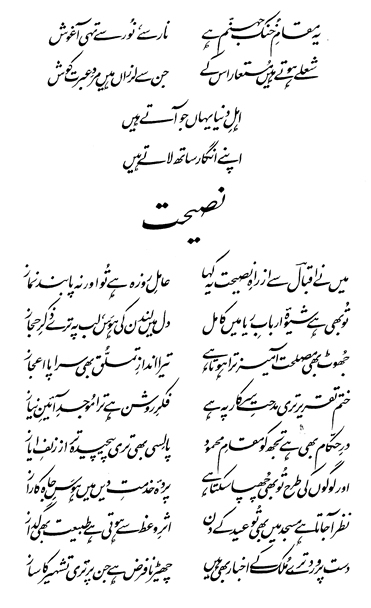 یہ مقامِ خنک جہنّم ہے نار سے نُور سے تہی آغوش
شعلے ہوتے ہیں مُستعار اس کے جن سے لرزاں ہیں مردِ عبرت کوش
اہلِ دنیا یہاں جو آتے ہیں
اپنے انگار ساتھ لاتے ہیں
نصیحت
میں نے اقبالؔ سے از راہِ نصیحت یہ کہا عاملِ روزہ ہے تُو اور نہ پابندِ نماز
تُو بھی ہے شیوۂ اربابِ ریا میں کامل دل میں لندن کی ہوَس، لب پہ ترے ذکرِ حجاز
جھوٹ بھی مصلحت آمیز ترا ہوتا ہے تیرا اندازِ تملّق بھی سراپا اعجاز
ختم تقریر تری مدحتِ سرکار پہ ہے فکرِ روشن ہے ترا مُوجدِ آئینِ نیاز
درِ حکّام بھی ہے تجھ کو مقامِ محمود پالسی بھی تری پیچیدہ تر از زلفِ ایاز
اور لوگوں کی طرح تُو بھی چھپا سکتا ہے پردۂ خدمتِ دیں میں ہوَسِ جاہ کا راز
نظر آجاتا ہے مسجد میں بھی تُو عید کے دن اثرِ وعظ سے ہوتی ہے طبیعت بھی گداز
دست پرورد ترے مُلک کے اخبار بھی ہیں چھیڑنا فرض ہے جن پر تری تشہیر کا ساز